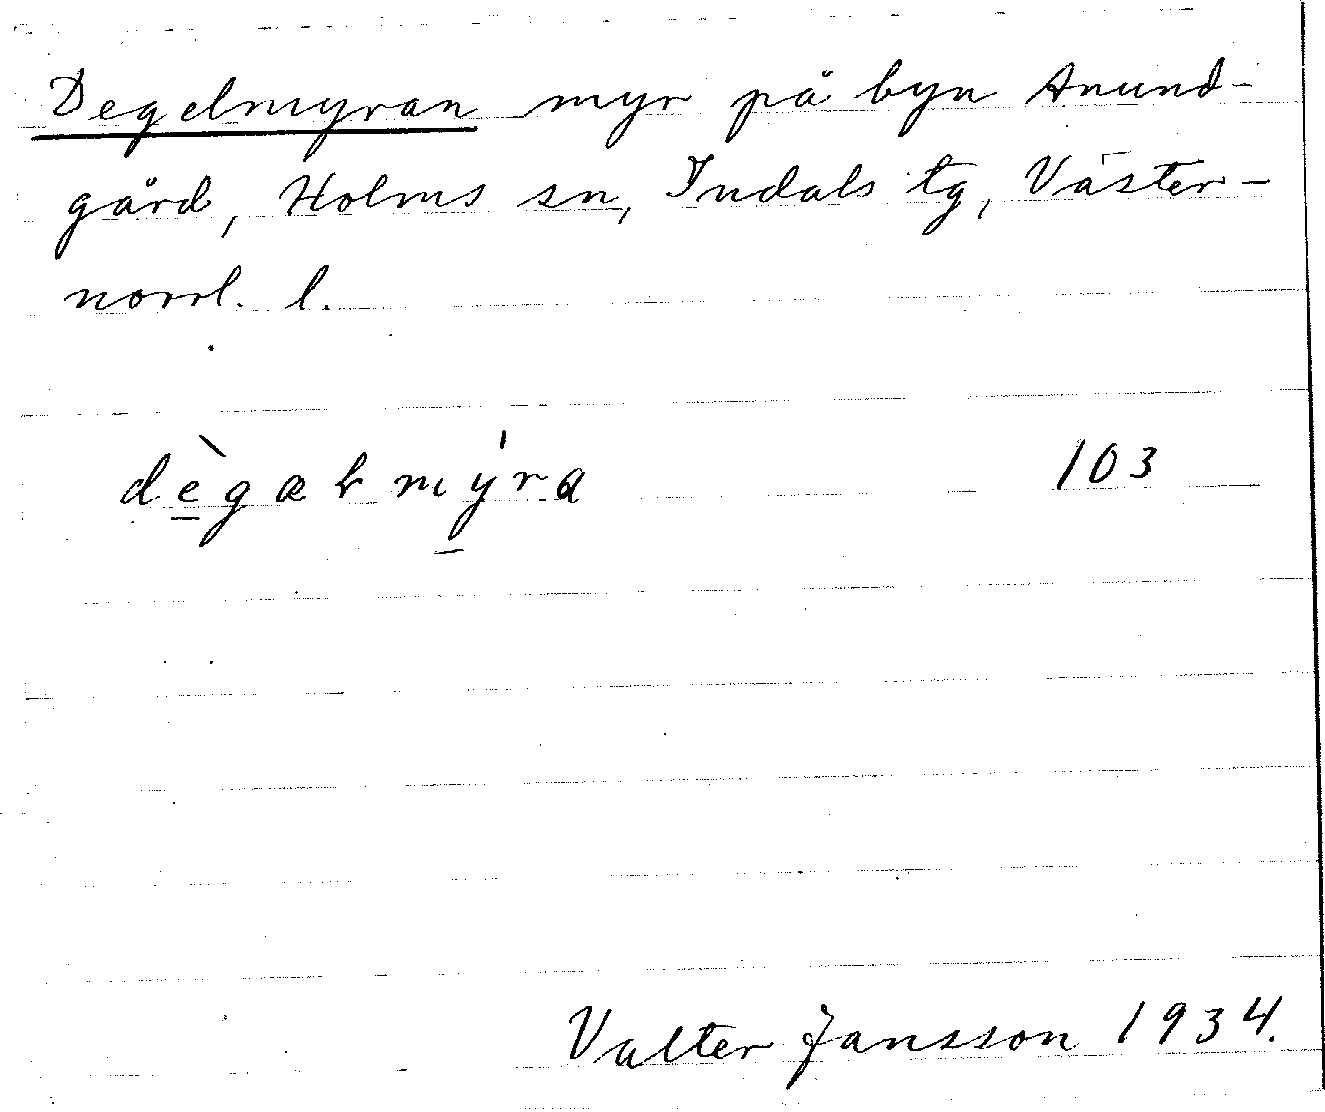 Degelmyran myr på byn Anund-
gård, Holms sn, Indals tg, Väster-
norrl. l.
dè̱gæɫmý̱ra 103
Valter Jansson 1934.